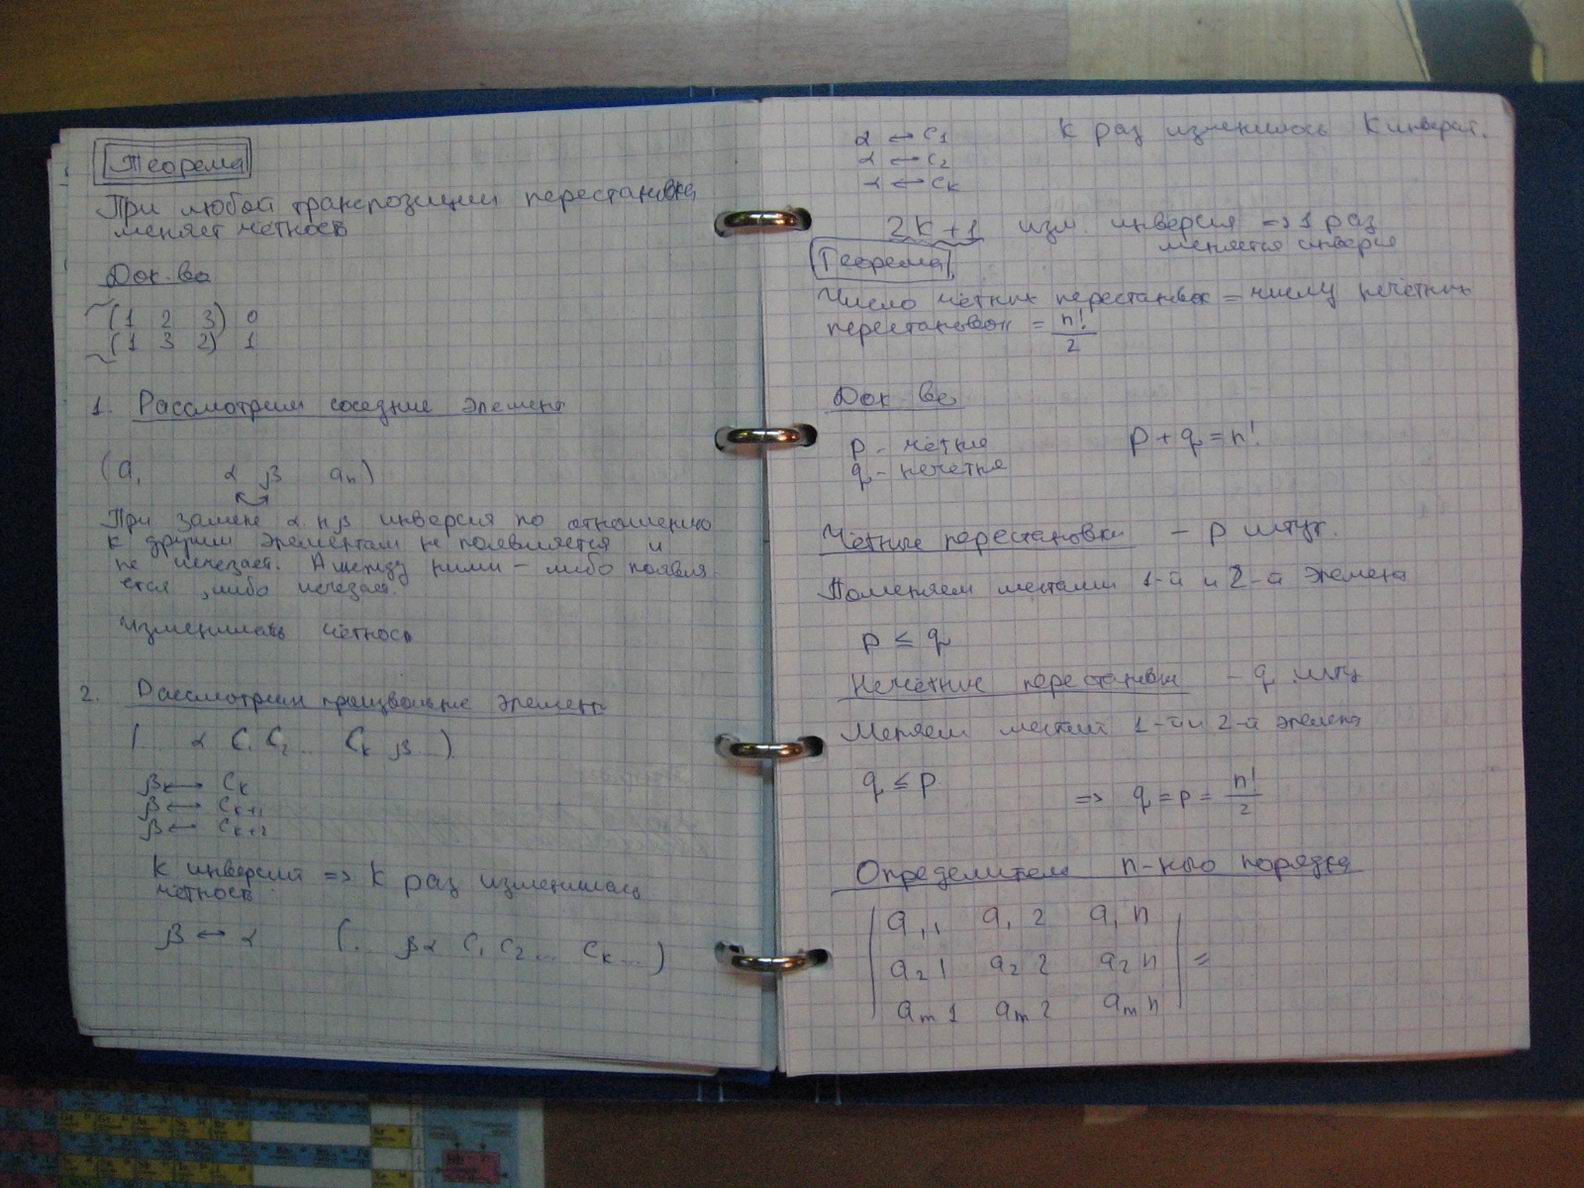 Теорема
При любой транспозиции перестановка
меняет чётность
Док-во
(1 2 3) 0
(1 3 2) 1
1. Рассмотрим соседние элемент
(a₁ α β aₙ)
При замене α и β инверсия по отношению
к другим элементам не появляется и
не исчезает. А между ними – либо появля
ется, либо исчезает.
Изменилась чётность
2. Рассмотрим произвольные элемент
(... α C₁ C₂ ... Cₖ β ...)
β ↔ Cₖ
β ↔ Cₖ₊₁
β ↔ Cₖ₊₂
K инверсий => K раз изменилась
чётность
β ↔ α (... β α C₁ C₂ ... Cₖ ...)
α ↔ C₁ K раз изменилось K инверсий.
α ↔ C₂
α ↔ Cₖ
2K+1 изм. инверсия => 1 раз
меняется инверсия
Теорема
Число чётных перестановок = числу нечётных
перестановок = n!/2
Док-во
p - чётные p + q = n!
q - нечётные
Чётные перестановки – p штук.
Поменяем местами 1-й и 2-й элемент
p ≤ q
Нечётные перестановки – q штук
Меняем местами 1-й и 2-й элемент
q ≤ p => q = p = n!/2
Определители n-ного порядка
| a₁1 a₁2 a₁n |
| a₂1 a₂2 a₂n | =
| aₘ1 aₘ2 aₘn |